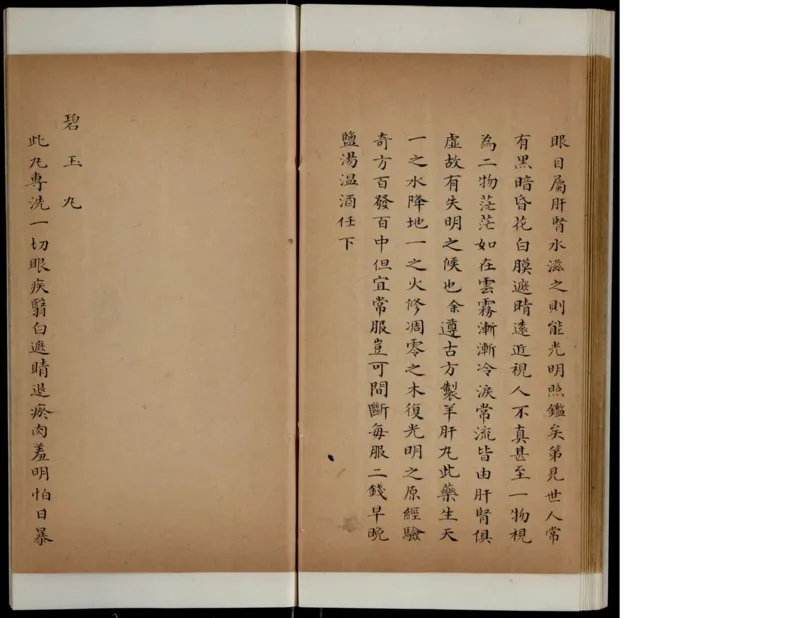 眼目屬肝腎水滋之則能光明照鑑矣第見世人常
有黑暗昏花白膜遮睛遠近視人不真甚至一物視
為二物茫茫如在雲霧漸漸冷淚常流皆由肝腎俱
虛故有失明之候也余遵古方製羊肝丸此藥生天
一之水降地一之火修凋零之木復光明之原經驗
奇方百發百中但宜常服豈可間斷每服二錢早晚
鹽湯温酒任下
碧玉丸
此丸專洗一切眼疾翳白遮睛退瘀肉羞明怕日暴